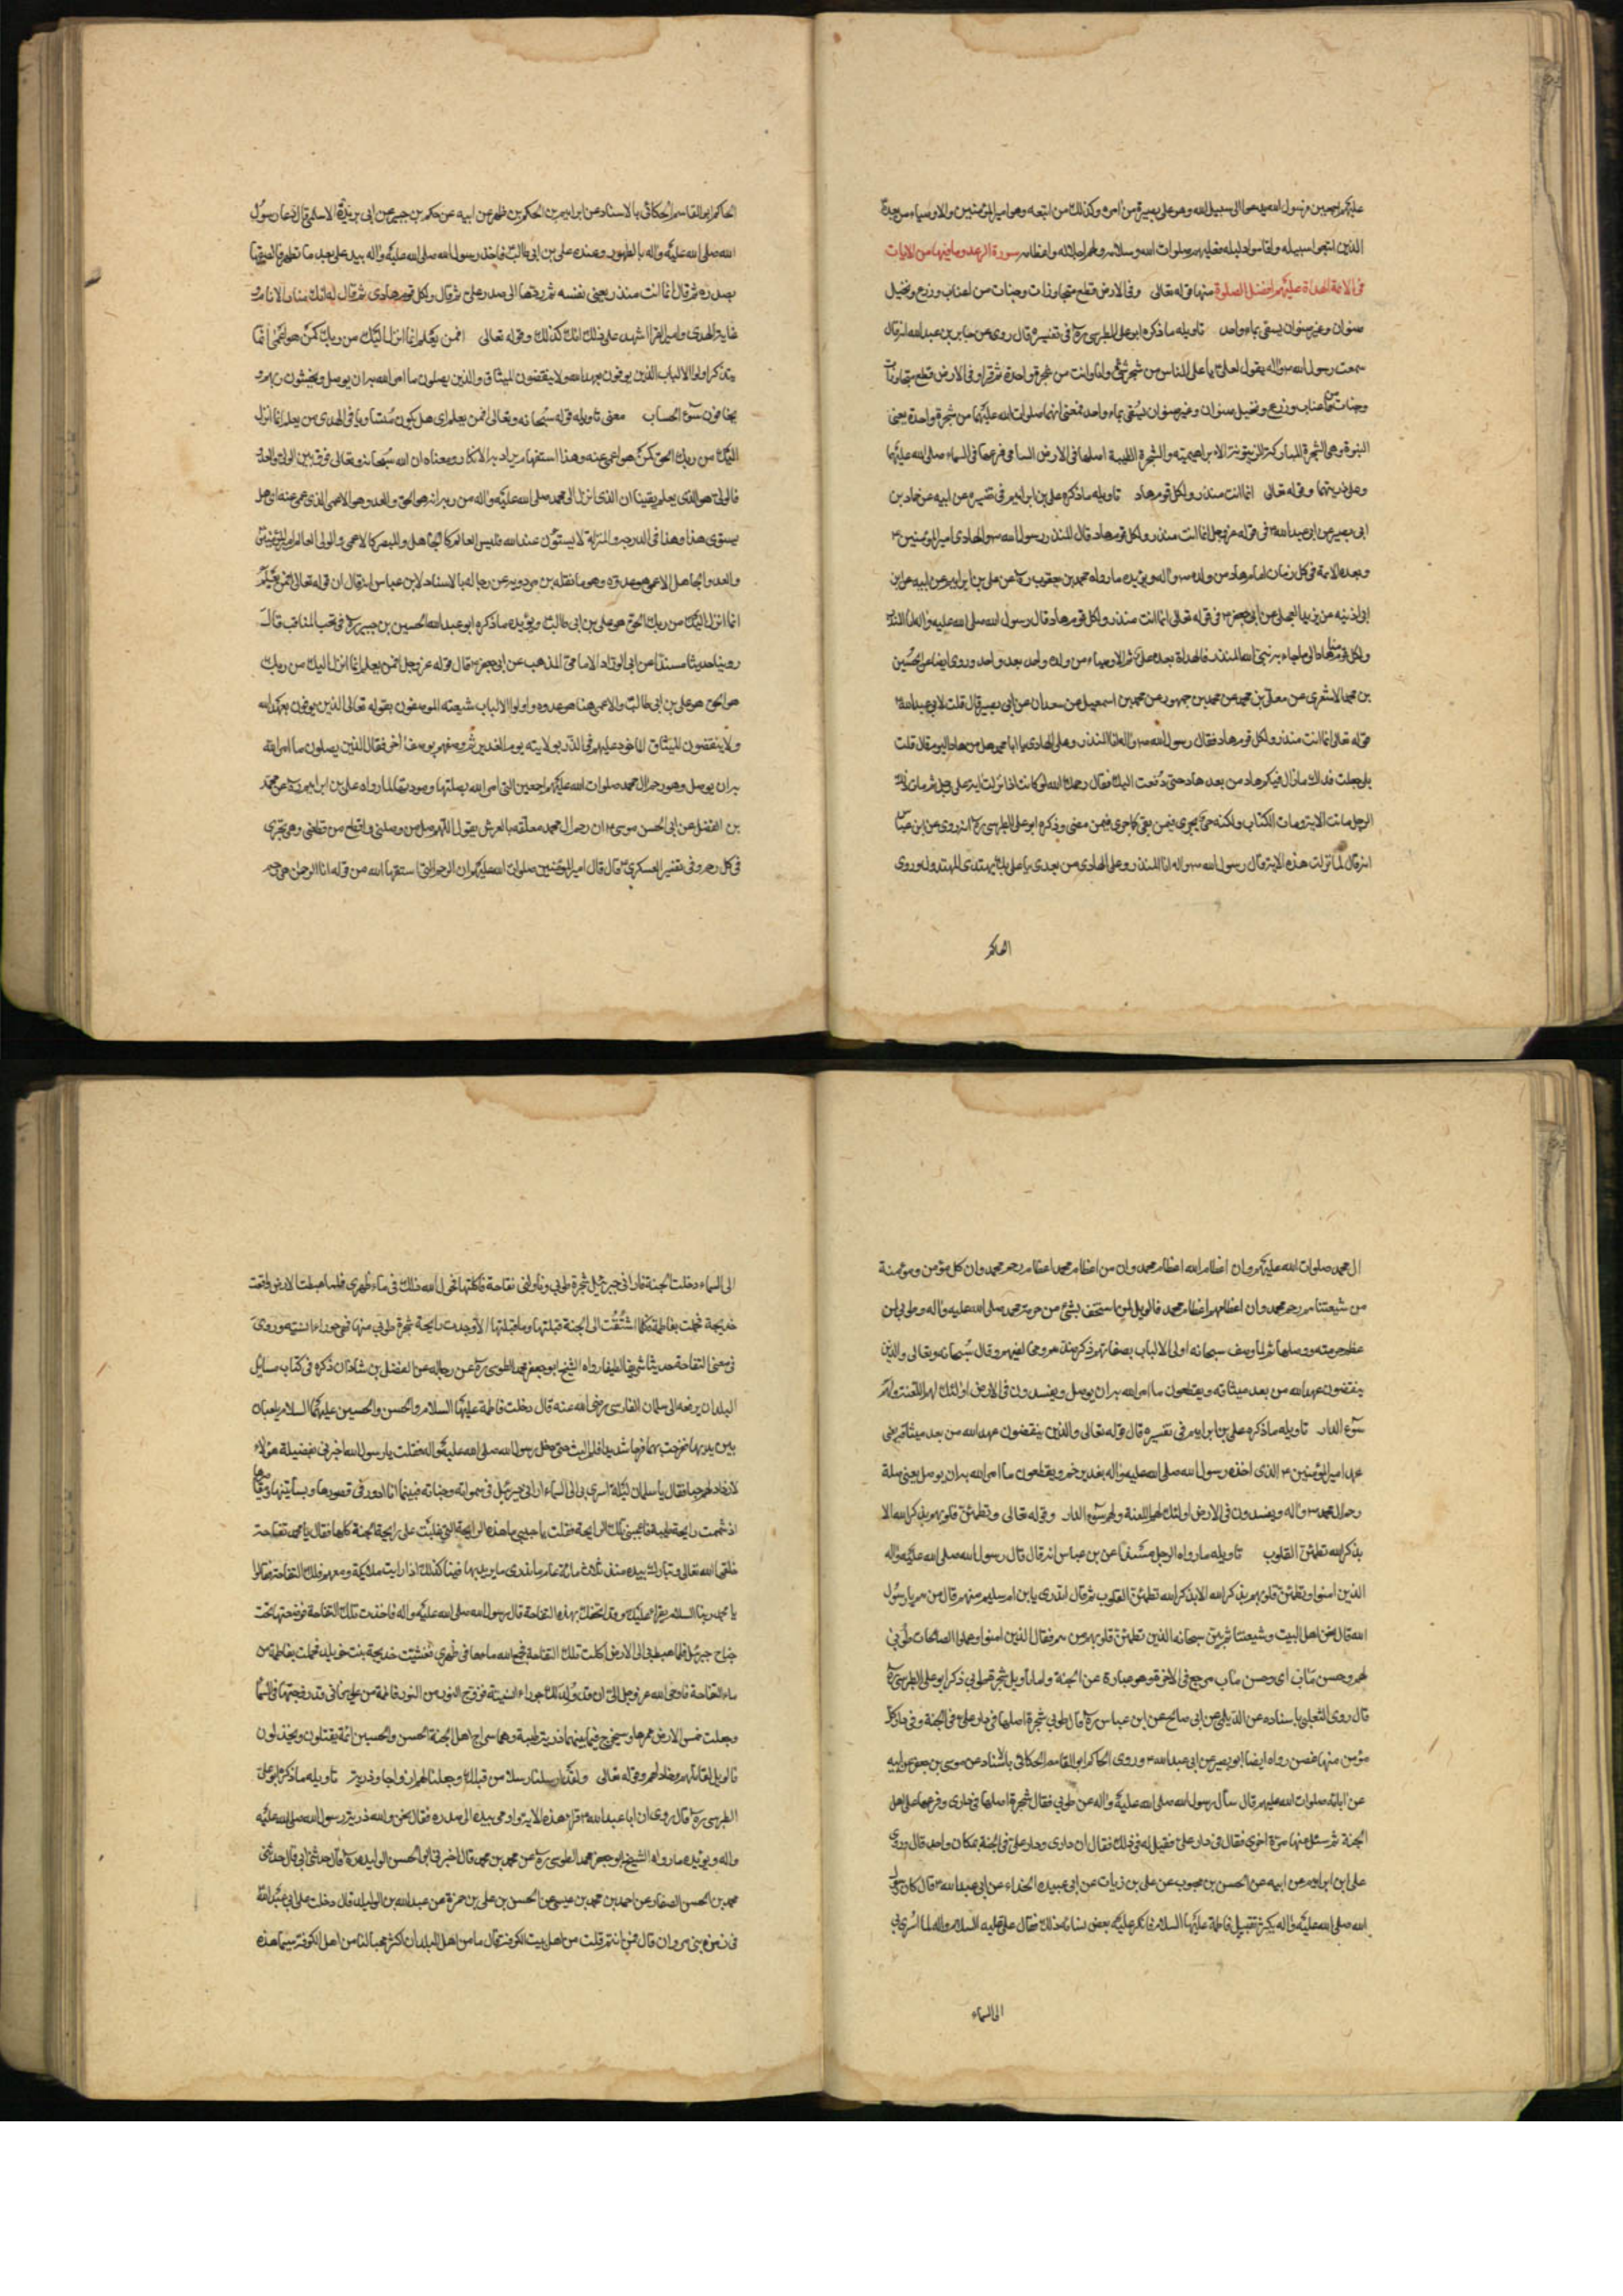 عليهم اجمعين ورسول الله يدعو الى سبيل الله وهو على بصيرة من امره وكذلك من اتبعه وهو امير المؤمنين والاوصياء من بعده
الذين اتبعوا سبيله واقاموا دليله فعليهم صلوات الله وسلامه سورة الرعد وما فيها من الايات
فى الائمة الهداة عليهم افضل الصلوة منها قوله تعالى وفى الارض قطع متجاورات وجنات من اعناب وزرع ونخيل
صنوان وغير صنوان يسقى بماء واحد تاويله ما ذكره ابو على الطبرسى ره فى تفسيره قال روى عن جابر بن عبد الله انه قال
سمعت رسول الله ص واله يقول لعلى يا على الناس من شجر شتى وانا وانت من شجرة واحدة ثم قرا وفى الارض قطع متجاورات
وجنات من اعناب وزرع ونخيل صنوان وغير صنوان يسقى بماء واحد فمعنى انهما صلوات الله عليهما من شجرة واحدة يعنى
النبوة وهى الشجرة المباركة الزيتونة الابراهيمية والشجرة الطيبة اصلها فى الارض السامى فرعها فى السماء صلى الله عليهما
وعلى ذريتهما وقوله تعالى انما انت منذر ولكل قوم هاد تاويله ما ذكره على بن ابراهيم فى تفسيره عن ابيه عن حماد بن
ابى بصير عن ابى عبد الله ع فى قوله عز وجل انما انت منذر ولكل قوم هاد قال المنذر رسول الله ص والهادى امير المؤمنين ع
وبعده الائمة فى كل زمان امام هاد من ولده ص واله ويؤيده ما رواه محمد بن يعقوب ره عن على بن ابراهيم عن ابيه عن ابن
ابى اذينه عن بريد العجلى عن ابى جعفر ع فى قوله تعالى انما انت منذر ولكل قوم هاد قال رسول الله صلى الله عليه واله المنذر
ولكل قوم منا هاد الى ما جاء به نبى الله المنذر فالهداة بعده على ثم الاوصياء من ولده واحد بعد واحد وروى ايضا عن الحسين
بن محمد الاشعرى عن معلى بن محمد عن محمد بن جمهور عن محمد بن اسمعيل عن سعدان عن ابى بصير قال قلت لابى عبد الله ع
قوله تعالى انما انت منذر ولكل قوم هاد فقال رسول الله ص واله المنذر وعلى الهادى يا ابا محمد هل من هاد اليوم قال قلت
بلى جعلت فداك ما زال فيكم هاد من بعد هاد حتى دفعت اليك فقال رحمك الله لو كانت اذا نزلت اية على رجل ثم مات ذلك
الرجل ماتت الاية ومات الكتاب ولكنه حى يجرى فيمن بقى كما جرى فيمن مضى وذكر ابو على الطبرسى ره انه روى عن ابن عباس
انه قال لما نزلت هذه الاية قال رسول الله ص واله انا المنذر وعلى الهادى من بعدى يا على بك يهتدى المهتدون وروى
الحاكم
الحاكم ابو القاسم الحسكانى بالاسناد عن ابراهيم بن الحكم بن ظهير عن ابيه عن حكم بن جبير عن ابى بردة الاسلمى قال دعا رسول
الله صلى الله عليه واله بالطهور وعنده على بن ابى طالب فاخذ رسول الله صلى الله عليه واله بيد على بعد ما تطهر فالصقها
بصدره ثم قال انما انت منذر يعنى نفسه ثم ردها الى صدر على ثم قال ولكل قوم هادى ثم قال له انك منار الانام و
غاية الهدى وامير القرا اشهد على ذلك انك كذلك وقوله تعالى افمن يعلم انما انزل اليك من ربك كمن هو اعمى انما
يتذكر اولوا الالباب الذين يوفون بعهد الله ولا ينقضون الميثاق والذين يصلون ما امر الله به ان يوصل ويخشون ربهم و
يخافون سوء الحساب معنى تاويله قوله سبحانه وتعالى افمن يعلم اى هل يكون مستاويا فى الهدى من يعلم انما انزل
اليك من ربك الحق كمن هو اعمى عنه وهذا استفهام يراد به الانكار ومعناه ان الله سبحانه وتعالى فرق بين الولى والعدو
فالولى هو الذى يعلم يقينا ان الذى انزل الى محمد صلى الله عليه واله من ربه انه هو الحق والعدو هو الاعمى الذى عمى عنه اى هل
يستوى هذا وهذا فى الدرجه والمنزلة لا يستوون عند الله فليس العالم كالجاهل والبصير كالاعمى والولى العالم امير المؤمنين
والعدو الجاهل الاعمى هو عدوه وهو ما نقله بن مردويه عن رجاله بالاسناد لابن عباس انه قال ان قوله تعالى افمن يعلم
انما انزل اليك من ربك الحق هو على بن ابى طالب ويؤيده ما ذكره ابو عبد الله الحسين بن جبير ره فى نخب المناقب قال
روينا حديثا مسندا عن ابى الورد الامامى المذهب عن ابى جعفر ع قال قوله عز وجل افمن يعلم انما انزل اليك من ربك
هو الحق هو على بن ابى طالب والاعمى هنا هو عدوه واولوا الالباب شيعته الموصفون بقوله تعالى الذين يوفون بعهد الله
ولا ينقضون الميثاق الماخوذ عليهم فى الذر بولايته يوم الغدير ثم وصفهم بوصف اخر فقال الذين يصلون ما امر الله
به ان يوصل وهو رحم ال محمد صلوات الله عليهم اجمعين التى امر الله بصلتها ومودتها لما رواه على بن ابراهيم ره عن محمد
بن الفضل عن ابى الحسن موسى ع ان رحم ال محمد معلقه بالعرش يقول اللهم صل من وصلنى واقطع من قطعنى وهى تجرى
فى كل رحم وفى تفسير العسكرى ع قال قال امير المؤمنين صلوات الله عليه ان الرحم التى اشتقها الله من قوله انا الرحمن هى رحم
ال محمد صلوات الله عليهم وان اعظام الله اعظام محمد وان من اعظام محمد اعظام رحم محمد وان كل مؤمن ومؤمنة
من شيعتنا من رحم محمد وان اعظامهم اعظام محمد فالويل لمن استخف بشئ من حرمة محمد صلى الله عليه واله وطوبى لمن
عظم حرمته ووصلها ثم لما وصف سبحانه اولى الالباب بصفاتهم ذكر وقال سبحانه وتعالى والذين
ينقضون عهد الله من بعد ميثاقه ويقطعون ما امر الله به ان يوصل ويفسدون فى الارض اولئك لهم اللعنة ولهم
سوء الدار تاويله ما ذكره على بن ابراهيم فى تفسيره قال قوله تعالى والذين ينقضون عهد الله من بعد ميثاقه يعنى
عهد امير المؤمنين ع الذى اخذه رسول الله صلى الله عليه واله بغدير خم ويقطعون ما امر الله به ان يوصل يعنى صلة
رحم ال محمد ص واله ويفسدون فى الارض اولئك لهم اللعنة ولهم سوء الدار وقوله تعالى وتطمئن قلوبهم بذكر الله الا
بذكر الله تطمئن القلوب تاويله ما رواه الرجل عن بن عباس انه قال قال رسول الله صلى الله عليه واله
الذين امنوا وتطمئن قلوبهم بذكر الله الا بذكر الله تطمئن القلوب ثم قال اتدرى يابن ام سليم من هم قال من هم يا رسول
الله قال نحن اهل البيت وشيعتنا ثم بين سبحانه الذين تطمئن قلوبهم من هم فقال الذين امنوا وعملوا الصالحات طوبى
لهم وحسن مآب اى وحسن مآب مرجع فى الاخرة وهو عبارة عن الجنة واما تاويل شجرة طوبى ذكر ابو على الطبرسى ره
قال روى الثعلبى باسناده عن الكلبى عن ابى صالح عن ابن عباس ره قال طوبى شجرة اصلها فى دار على ع فى الجنة وفى دار كل
مؤمن منها غصن رواه ايضا ابو بصير عن ابى عبد الله ع وروى الحاكم ابو القاسم الحسكانى باسناده عن موسى بن جعفر عن ابيه
عن ابائه صلوات الله عليهم قال سال رسول الله صلى الله عليه واله عن طوبى فقال شجرة اصلها فى دارى وفرعها على اهل
الجنة ثم سئل عنها مرة اخرى فقال فى دار على فقيل له فى ذلك فقال ان دارى ودار على فى الجنة بمكان واحد قال وروى
على بن ابراهيم عن ابيه عن الحسن بن محبوب عن على بن رياب عن ابى عبيده الحذاء عن ابى عبد الله ع قال كان رسول
الله صلى الله عليه واله يكثر تقبيل فاطمة عليها السلام فانكر عليه بعض نسائه ذلك فقال عليه السلام واله لما اسرى بى
الى السماء
الى السماء دخلت الجنة فادانى جبرئيل شجرة طوبى وناولنى تفاحة فاكلتها فحول الله ذلك فى ماء ظهرى فلما هبطت الارض واقعت
خديجة فحملت بفاطمة فكلما اشتقت الى الجنة قبلتها وما قبلتها الا وجدت رايحة شجرة طوبى منها فهى حوراء انسية وروى
فى معنى التفاحة حديثا شريفا لطيفا رواه الشيخ ابو جعفر محمد الطوسى ره عن رجاله عن الفضل بن شاذان ذكره فى كتاب مسائل
البلدان يرفعه الى سلمان الفارسى رضى الله عنه قال دخلت فاطمة عليها السلام والحسن والحسين عليهما السلام يلعبان
بين يديها ففرحت بهما فرحا شديدا فلم البث حتى دخل رسول الله صلى الله عليه واله فقلت يا رسول الله اخبرنى بفضيلة هؤلاء
لازداد لهم حبا فقال يا سلمان ليلة اسرى بى الى السماء ادارنى جبرئيل فى سمواته وجناته فبينما انا ادور فى قصورها وبساتينها ومقاصرها
اذ شممت رايحة طيبة فاعجبتنى تلك الرايحة فقلت يا حبيبى ما هذه الرايحة التى غلبت على رايحة الجنة كلها فقال يا محمد تفاحة
خلقها الله تعالى وتبارك بيده منذ ثلاث مائة عام ما ندرى ما يريد بها فبينا كذلك اذ رايت ملائكة ومعهم تلك التفاحة فقالوا
يا محمد ربنا السلام يقرا عليك وقد اتحفك بهذه التفاحة قال رسول الله صلى الله عليه واله فاخذت تلك التفاحة فوضعتها تحت
جناح جبرئيل فلما هبط بى الى الارض اكلت تلك التفاحة فجمع الله ماءها فى ظهرى فغشيت خديجة بنت خويلد فحملت بفاطمة من
ماء التفاحة فاوحى الله عز وجل الى ان قد ولد لك حوراء انسية فزوج النور من النور فاطمة من على فانى قد زوجتها فى السماء
وجعلت خمس الارض مهرها وسيخرج فيما بينهما ذرية طيبة وهما سراج اهل الجنة الحسن والحسين ائمة يقتلون ويخذلون
فالويل لقاتلهم وخاذلهم وقوله تعالى ولقد ارسلنا رسلا من قبلك وجعلنا لهم ازواجا وذرية تاويله ما ذكره ابو على
الطبرسى ره قال روى ان ابا عبد الله ع قرا هذه الاية واومى بيده الى صدره فقال نحن والله ذرية رسول الله صلى الله عليه
واله ويؤيده ما رواه الشيخ ابو جعفر محمد الطوسى ره عن محمد بن محمد قال اخبرنى ابو الحسن ابن الوليد ره قال حدثنى ابى قال حدثنى
محمد بن الحسن الصفار عن احمد بن محمد بن عيسى عن الحسن بن على بن حمزة عن عبد الله بن الوليد قال دخلت على ابى عبد الله
فى زمن بنى مروان قال ممن انتم قلت من اهل بيت الكوفة قال ما من اهل البلدان اكثر محبا لنا من اهل الكوفة سيما هذه